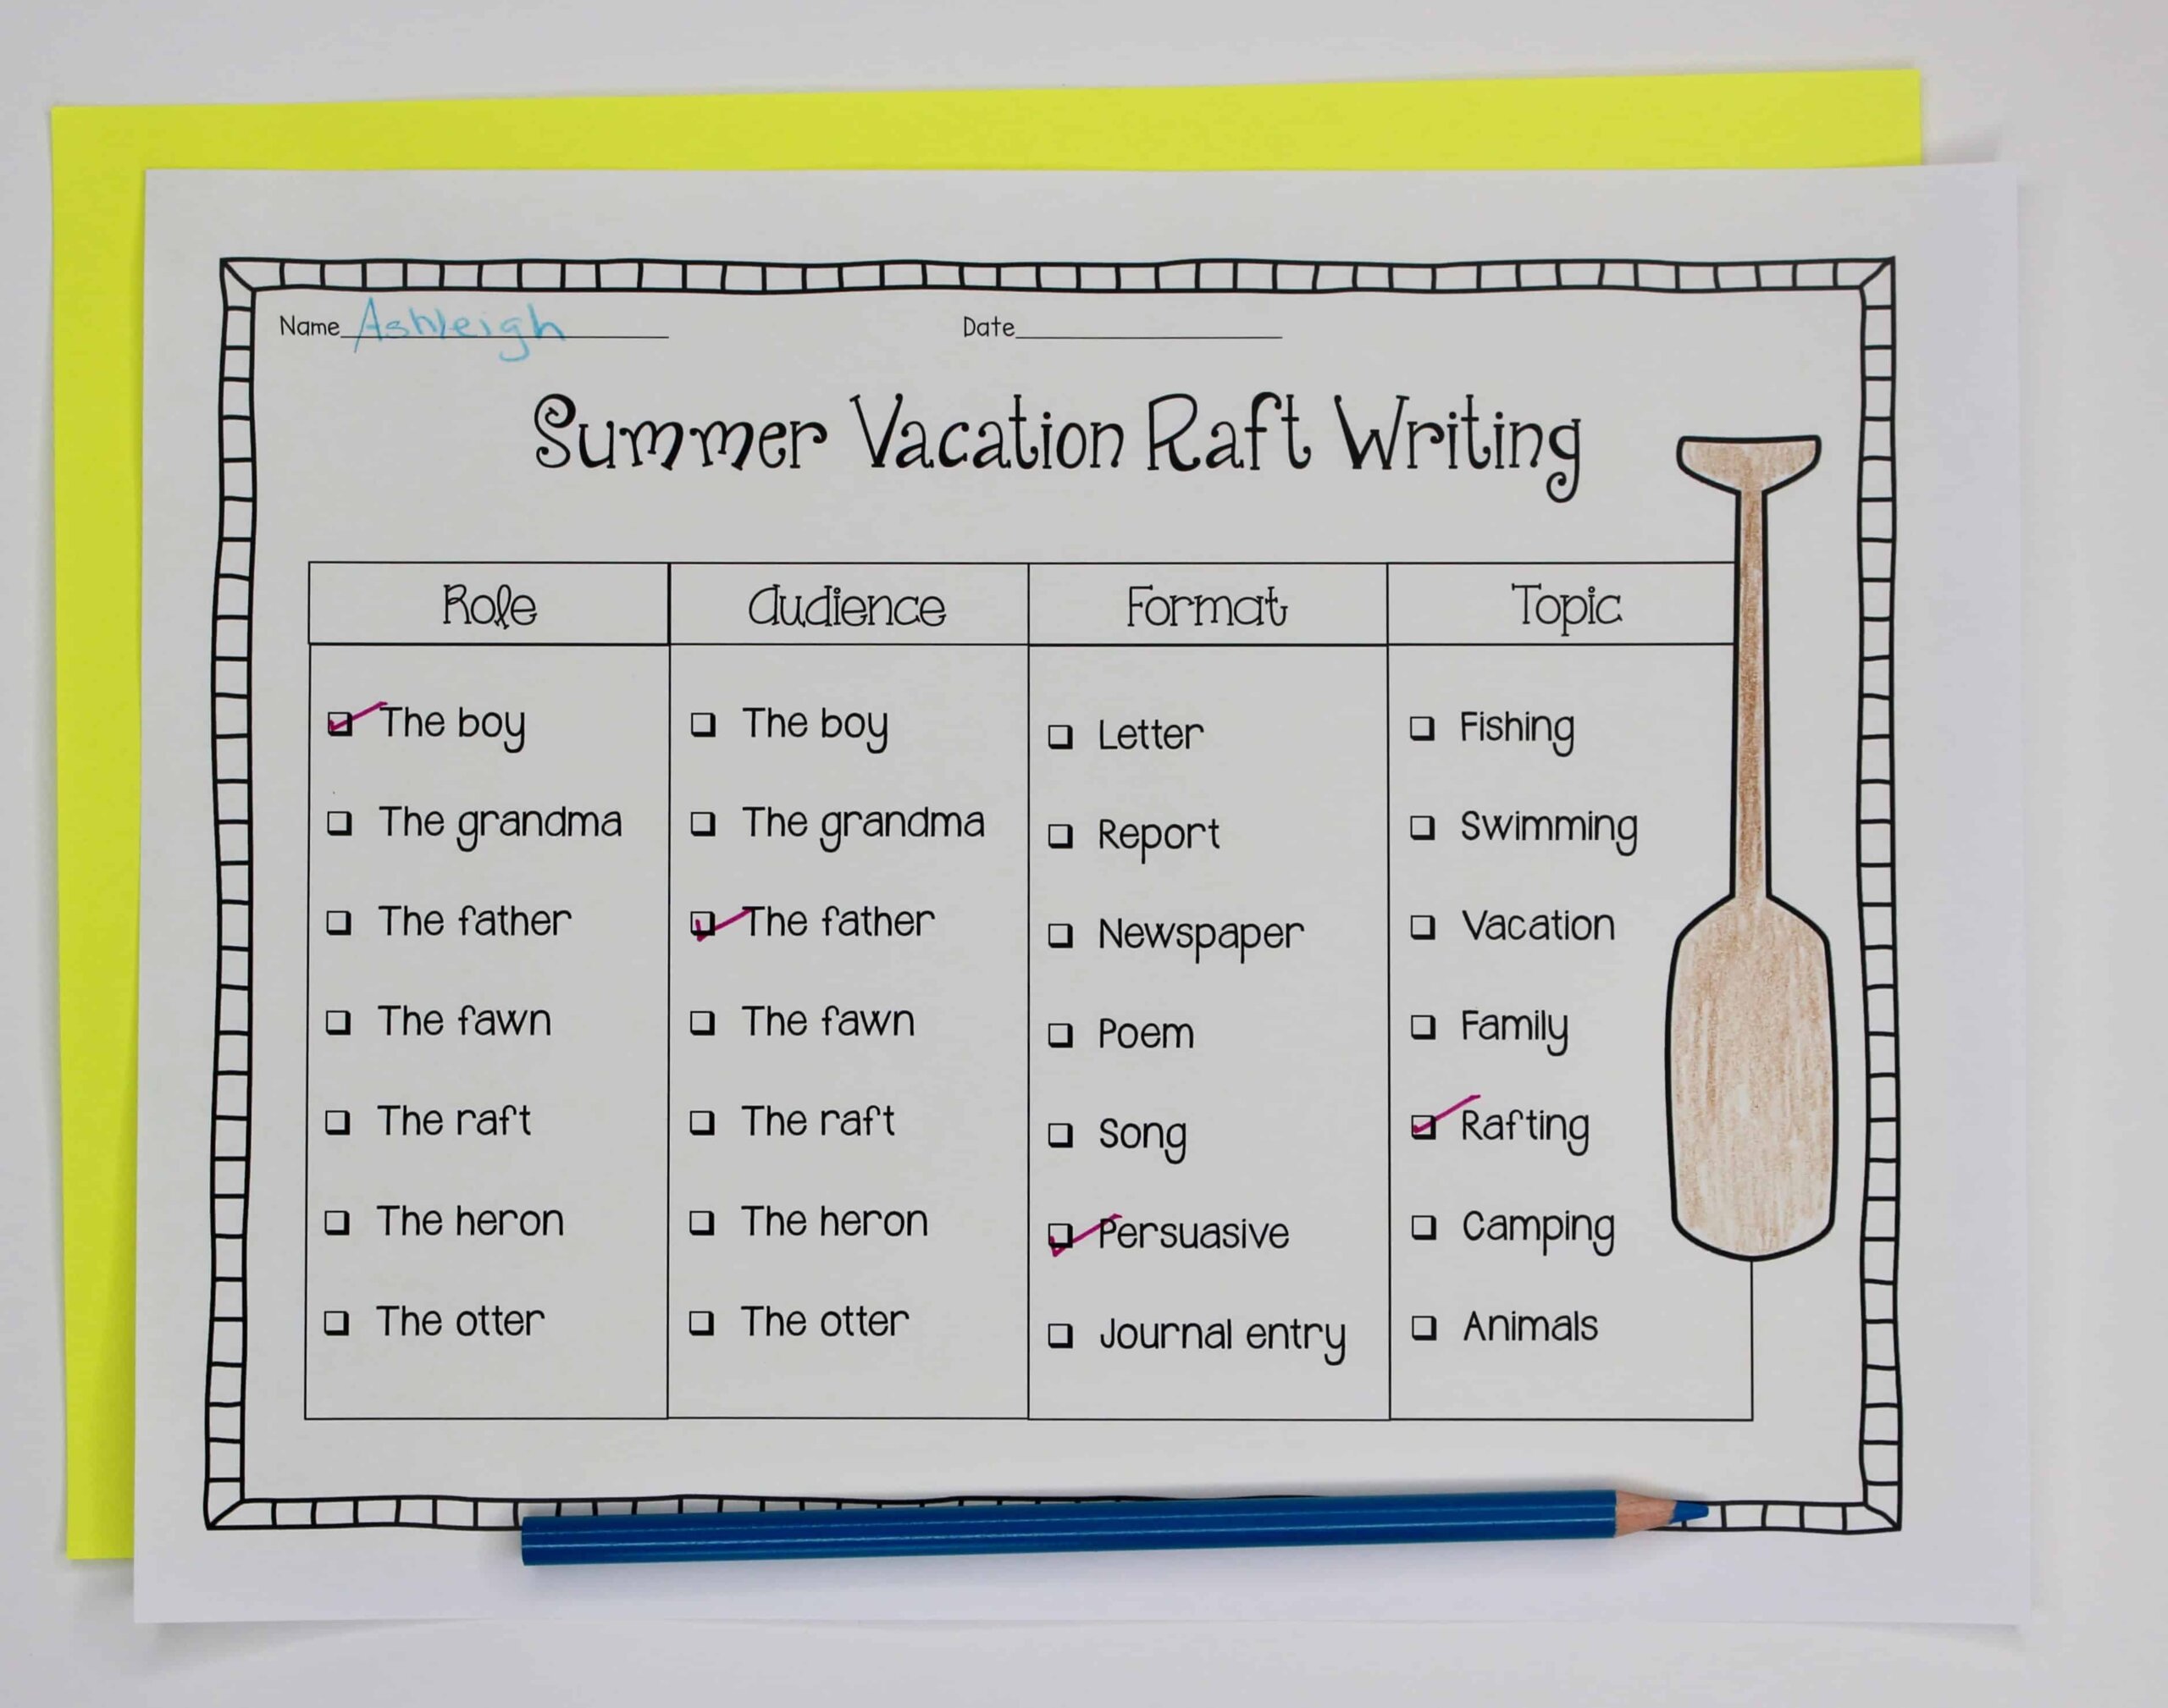 Name Ashleigh Date
Summer Vacation Raft Writing
Role Audience Format Topic
The boy The boy Letter Fishing
The grandma The grandma Report Swimming
The father The father Newspaper Vacation
The fawn The fawn Poem Family
The raft The raft Song Rafting
The heron The heron Persuasive Camping
The otter The otter Journal entry Animals